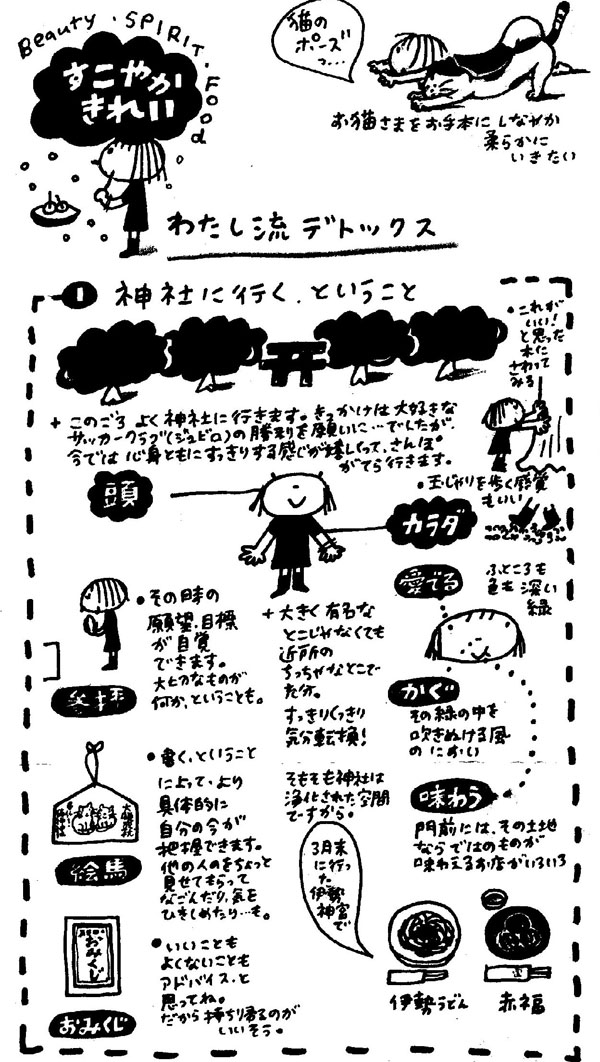 Beauty・SPIRIT・Food
すこやか
きれい
猫の
ポーズ
っ…
お猫さまをお手本にしなやか
柔らかに
いきたい
わたし流デトックス
1 神社に行く、ということ
・これが
いい!
と思った
木に
さわって
みる
+ このごろよく神社に行きます。きっかけは大好きな
サッカークラブ(ジュビロ)の勝利を願いに…でしたが、
今では心身ともにすっきりする感じが嬉しくって、さんぽ
がてら行きます。
・玉じゃりを歩く感覚
もいい
頭
カラダ
愛でる
ふところも
色も深い
緑
かぐ
その緑の中を
吹きぬける風
のにおい
味わう
門前には、その土地
ならではのものが
味わえるお店がいろいろ
参拝
・その時の
願望、目標
が自覚
できます。
大切なものが
何か、ということも。
+ 大きく有名な
とこじゃなくても
近所の
ちっちゃなとこで
充分。
すっきりくっきり
気分転換!
そもそも神社は
浄化された空間
ですから。
絵馬
・書く、ということ
によって、より
具体的に
自分の今が
把握できます。
他の人のをちょっと
見せてもらって
なごんだり、気を
ひきしめたり…も。
おみくじ
おみくじ
・いいことも
よくないことも
アドバイス、と
思ってね。
だから持ち帰るのが
いいそう。
3月末
に行っ
た
伊勢
神宮で
伊勢うどん
赤福